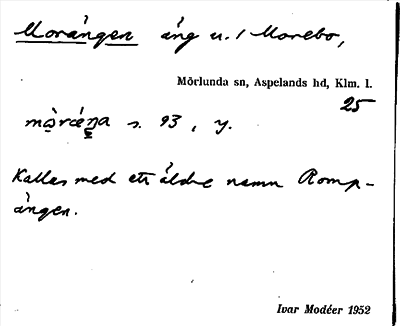 Morången äng u. 1 Morebo,
Mörlunda sn, Aspelands hd, Klm. l.
25
s. 93, y.
Kallas med ett äldre namn Romp-
ången.
Ivar Modéer 1952